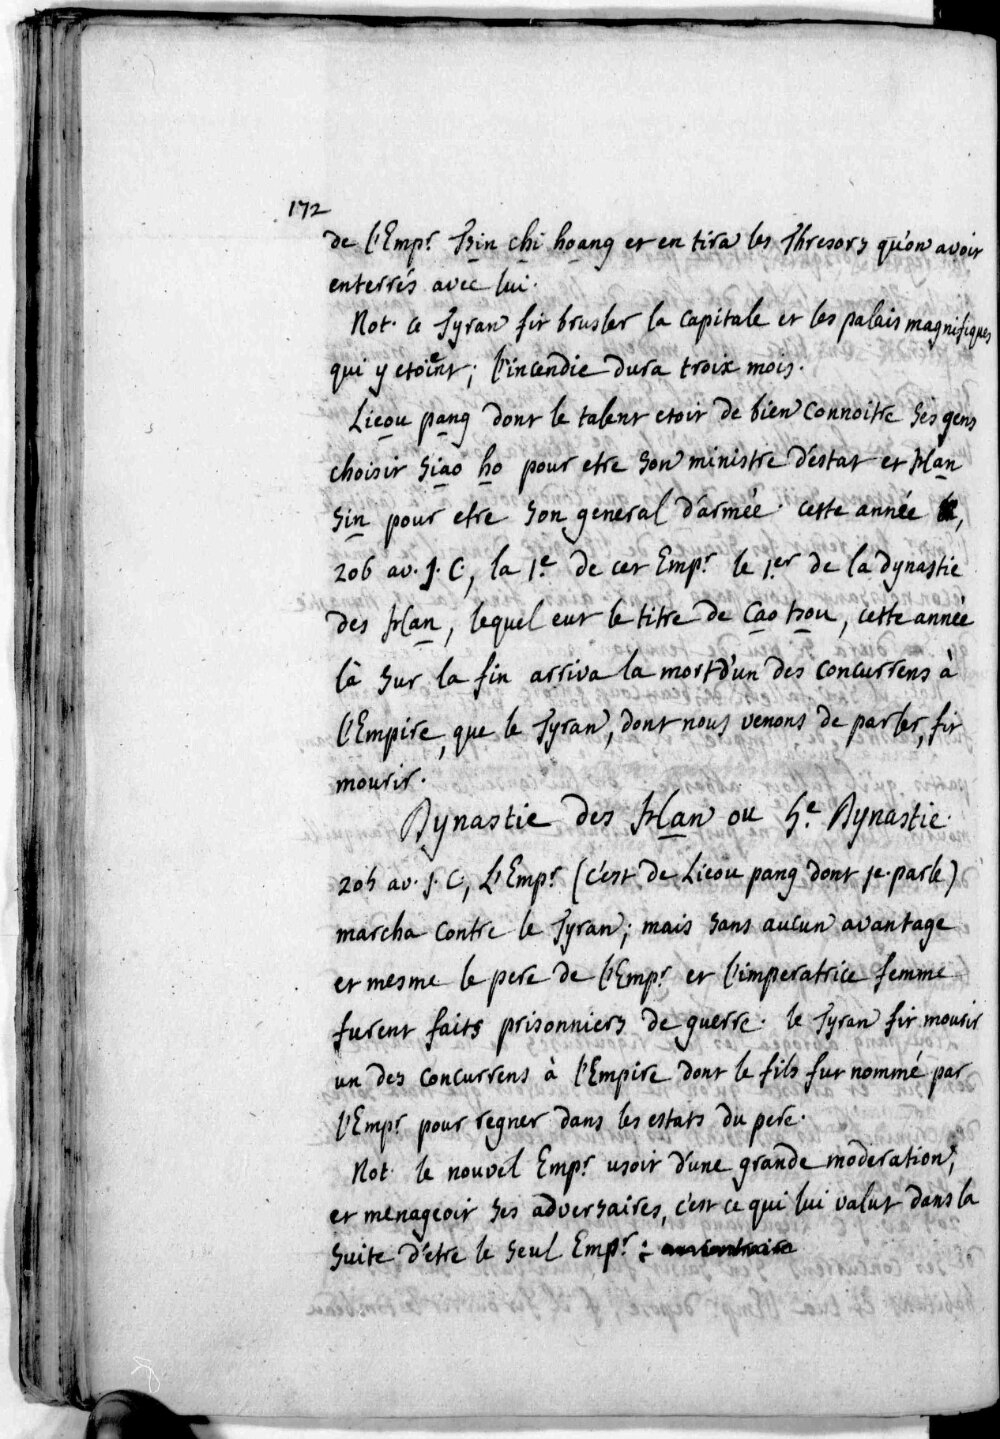 172
de l'Emp.r Tsin chi hoang et en tira les Thresors qu'on avoit
enterrés avec lui.
Not. ce Tyran fit brusler la capitale et les palais magnifiques
qui y etoient; l'incendie dura troix mois.
Lieou pang dont le talent etoit de bien connoitre ses gens
choisit Siao ho pour etre son ministre d'estat et Han
Sin pour etre son general d'armée. cette année
206 av. J. C., la 1.e de cet Emp.r le 1.er de la dynastie
des Han, lequel eut le titre de Cao tsou, cette année
là sur la fin arriva la mort d'un des concurrens à
l'Empire, que le Tyran, dont nous venons de parler, fit
mourir.
Dynastie des Han ou 5.e Dynastie.
205 av. J. C., L'Emp.r (c'est de Lieou pang dont je parle)
marcha contre le Tyran; mais sans aucun avantage
et mesme le pere de l'Emp.r et l'imperatrice femme
furent faits prisonniers de guerre. le Tyran fit mourir
un des concurrens à l'Empire dont le fils fut nommé par
l'Emp.r pour regner dans les estats du pere.
Not. le nouvel Emp.r usoit d'une grande moderation,
et menageoit ses adversaires, c'est ce qui lui valut dans la
suite d'etre le seul Emp.r :